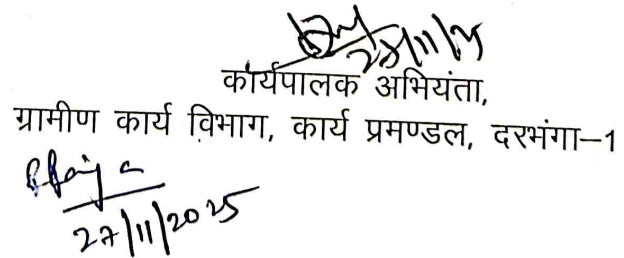 27/11/25
कार्यपालक अभियंता,
ग्रामीण कार्य विभाग, कार्य प्रमण्डल, दरभंगा–1
27/11/2025